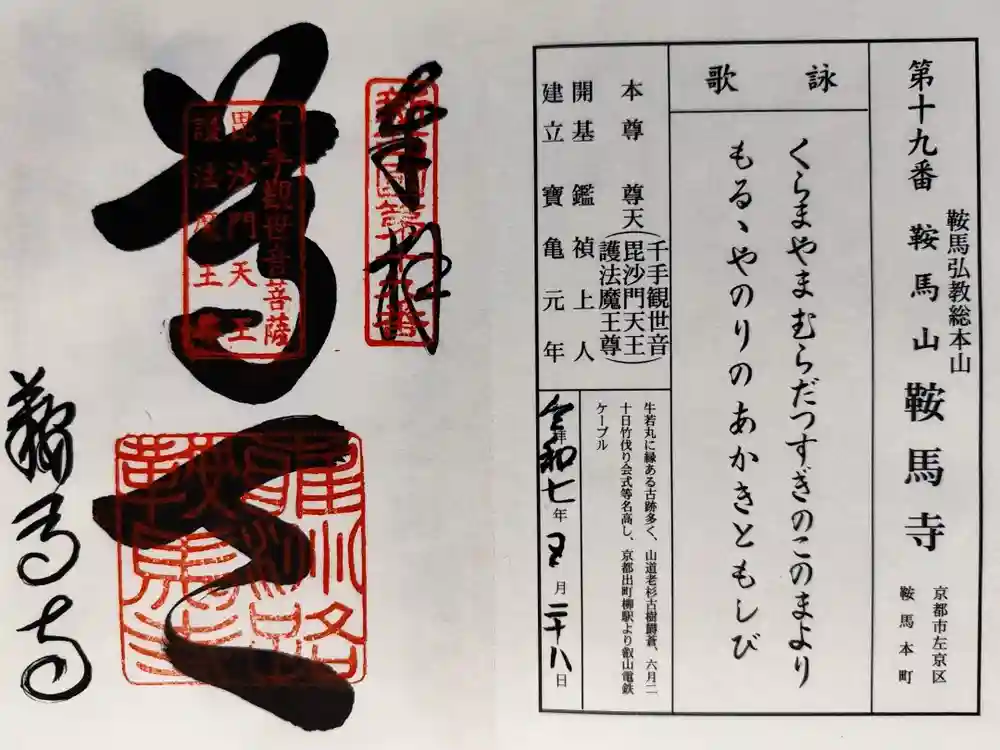 第十九番 鞍馬山 鞍馬寺
鞍馬弘教総本山
京都市左京区
鞍馬本町
詠歌
くらまやまむらだつすぎのこのまより
もるゝやのりのあかきともしび
本尊 尊天(千手観世音
毘沙門天王
護法魔王尊)
開基 鑑禎上人
建立 寶亀元年
牛若丸に縁ある古跡多く、山道老杉古樹欝蒼、六月二
十日竹伐り会式等名高し、京都出町柳駅より叡山電鉄
ケーブル
令和七年五月二十八日
奉拝
千手觀世音菩薩
毘沙門天王
護法魔王尊
尊天
鞍馬寺